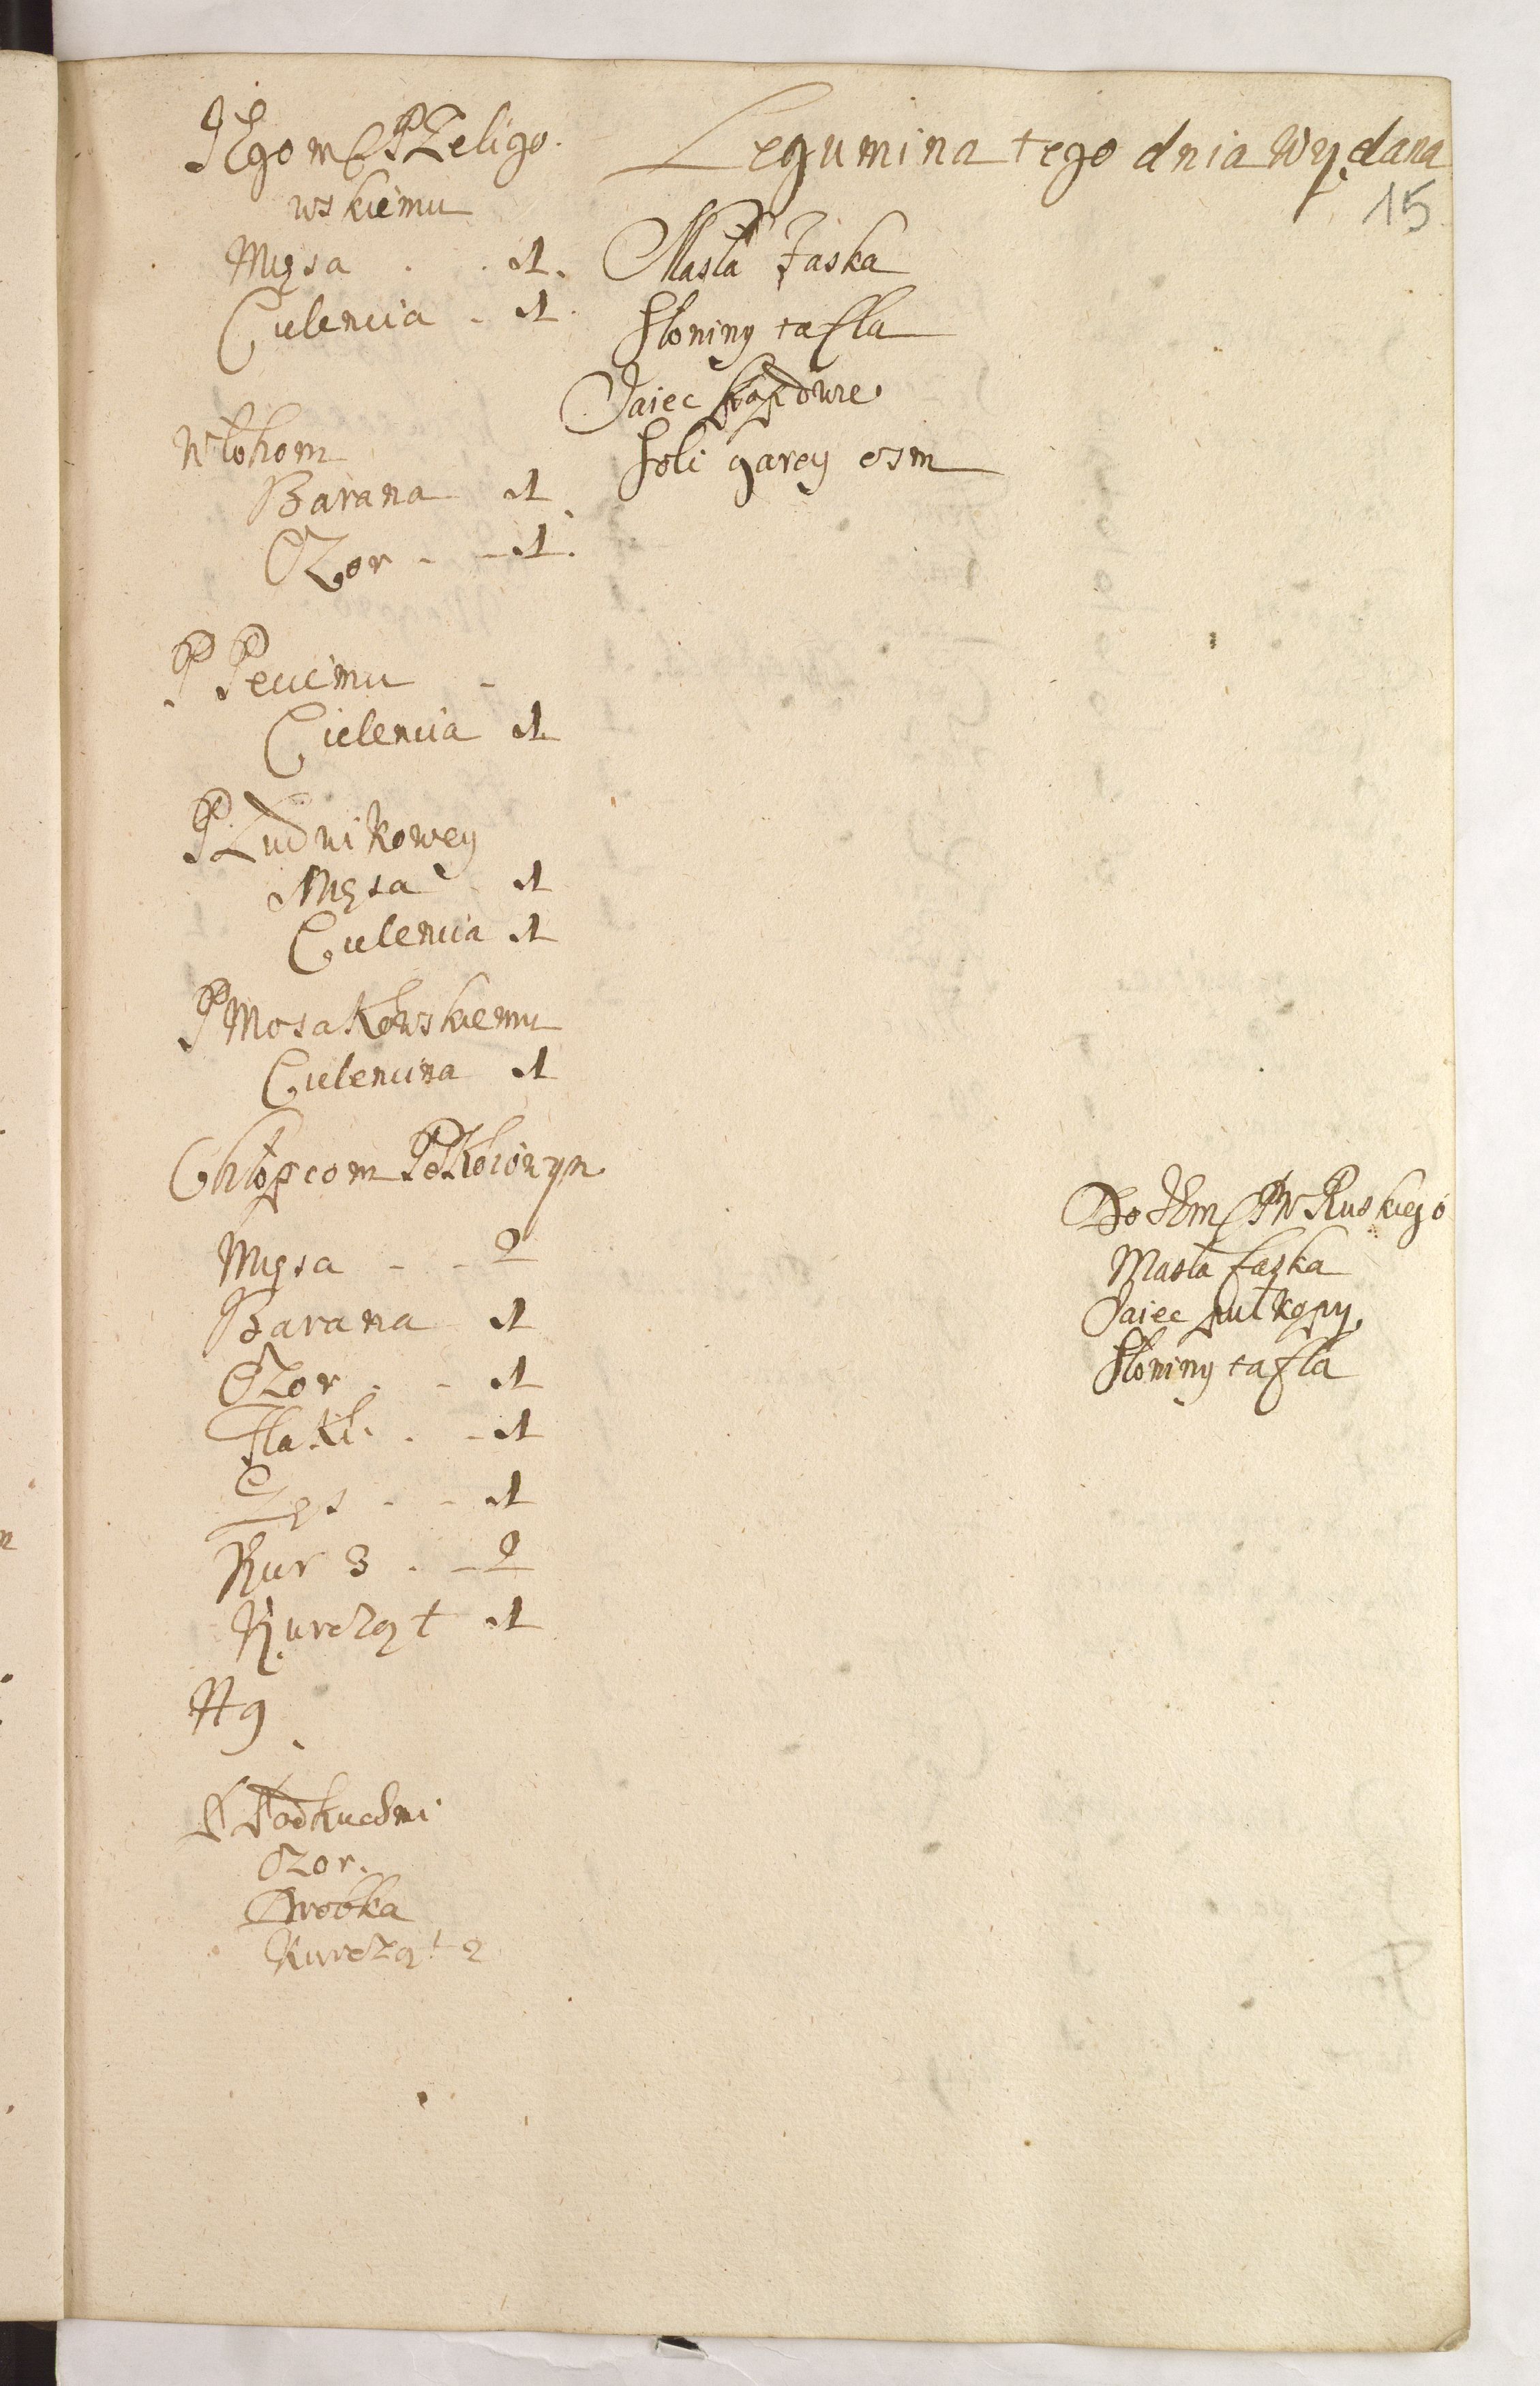 JEgomś P Zeligo-
wskiemu
Mięsa . . 1.
Cielencia - 1.
Włohom
Barana 1
Ozor - - 1.
P Peucimu -
Cielencia 1
P Ludnikowey
Mięsa - 1
Cielencia 1
P Mosakowskiemu
Cielencina 1
Chłopcom Pokoiowym
Mięsa - - 2
Barana 1
Ozor - - 1
Flaki . . - 1
Gęs - - 1
Kur 3 . - 2
Kurcząt 1
Podkuchmi
Ozor.
Drobka
Kurcząt 2
Legumina tego dnia Wydana
15
Masła Faska
Słoniny tafla
Jaiec kop dwie
Soli garcy osm
Do JEmś PW Ruskiego
Masła faska
Jaiec puł kopy
Słoniny tafla